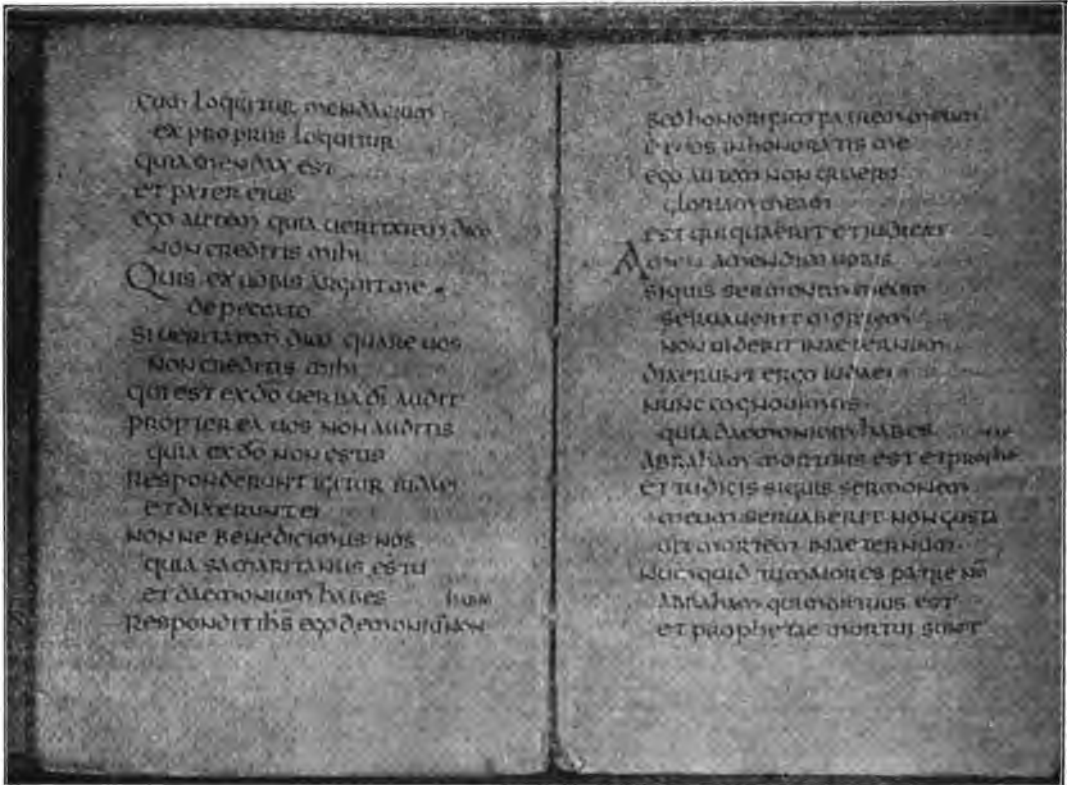 cum loquitur mendacium
ex propriis loquitur
quia mendax est
et pater eius
ego autem quia ueritatem dico
non creditis mihi
Quis ex uobis arguit me
de peccato
si ueritatem dico quare uos
non creditis mihi
qui est ex dō uerba dī audit
propter ea uos non auditis
quia ex dō non estis
Responderunt igitur iudaei
et dixerunt ei
nonne benedicimus nos
quia samaritanus es tu
et daemonium habes
habeo
Respondit ihs ego demoniū non
sed honorifico patrem meum
et uos inhonoratis me
ego autem non quaero
gloriam meam
est qui quaerit et iudicat
Amen amen dico uobis
siquis sermonem meum
seruauerit mortem
non uidebit in aeternum
dixerunt ergo iudaei
nunc cognouimus
quia daemonium habes
tae
Abraham mortuus est et prophe
et tu dicis siquis sermonem
meum seruaberit non gusta
bit mortem in aeternum
Numquid tu maior es patre nō
Abraham qui mortuus est
et prophetae mortui sunt